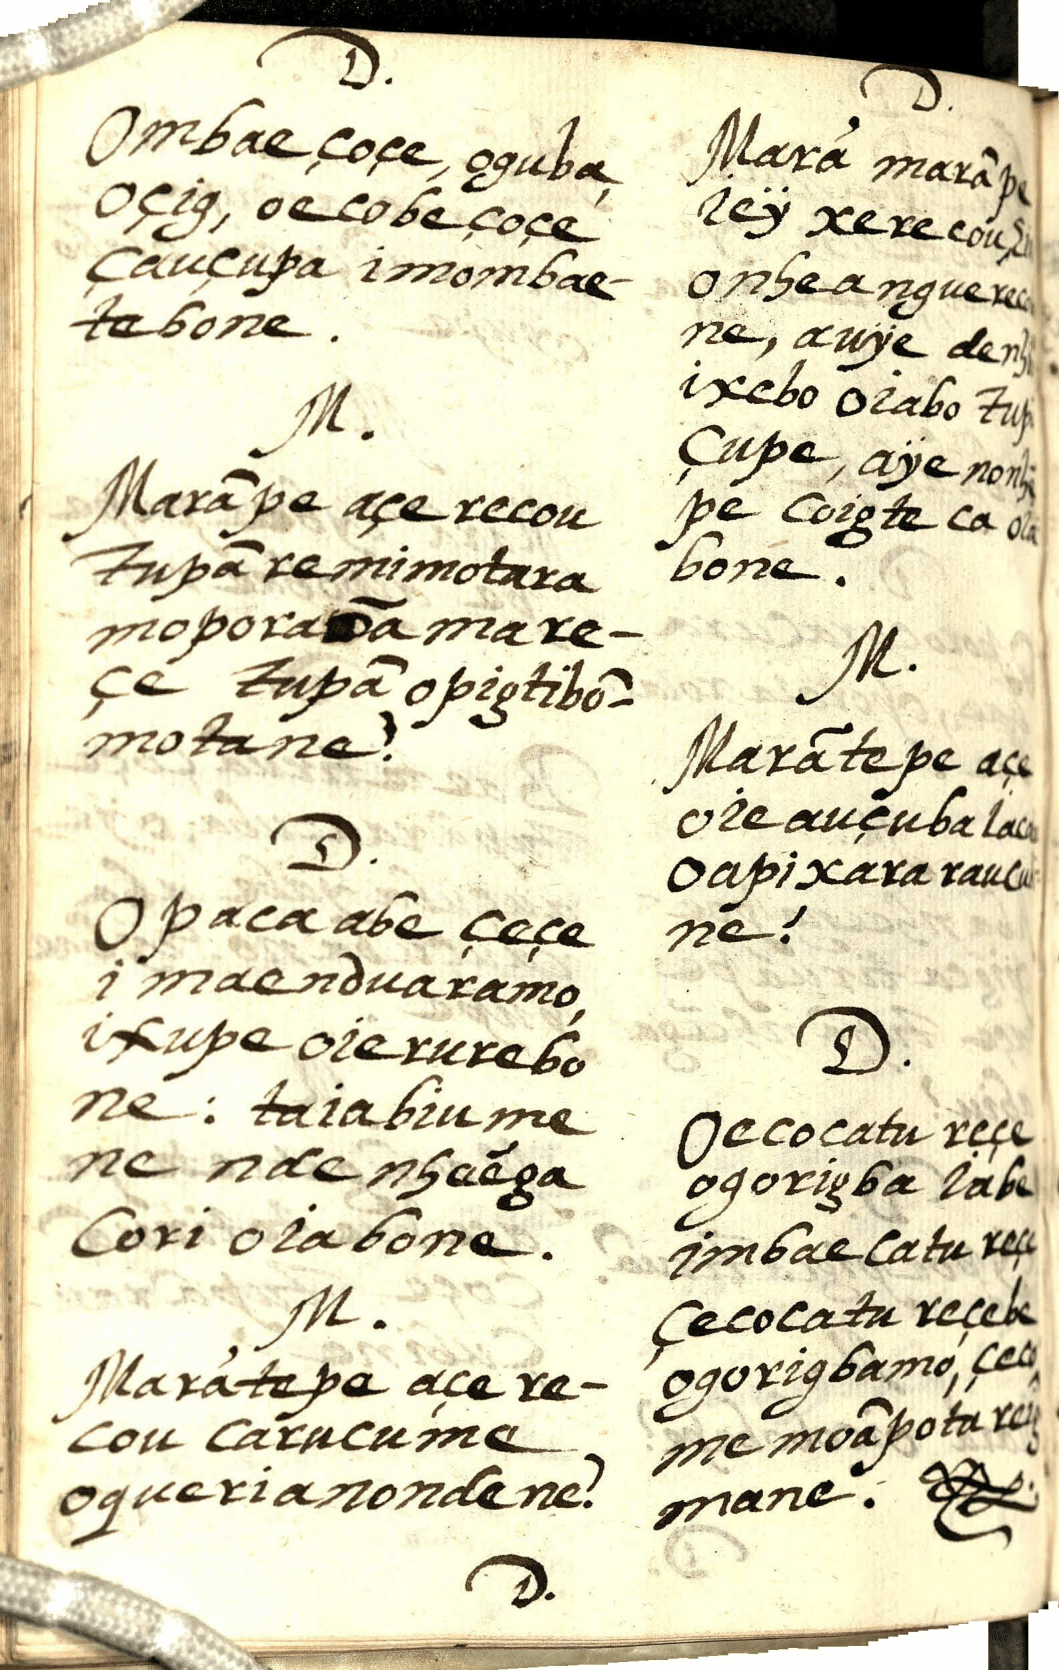 D.
Ombae çoçe, oguba,
oçig, oecobe çoçe
çauçupa imombae-
tebone.
M.
Marãpe açe recou
tupã remimotara
mopora ãa mare-
çe tupã opigtibõ-
motane?
D.
Opacaabe çeçe
i maenduaramo,
ixupe oierurebo
ne: taiabiume
ne nde nheẽga
Cori oiabone.
M.
Marãtepe açe re-
cou carucume
oquerianondene?
D.
D.
Mará marãpe
ieÿ xerecou
onheanguereco
ne, auÿe
ixebo oiabo tupã
çupe, aÿe
pe coigte ca
bone.
M.
Marãtepe açe
oieauçuba
oapixara
ne?
D.
Oecocatu reçe
ogorigba iabe
imbaecatu reçe
çecocatu reçebe
ogorigbamo,
me moãpota
mane.